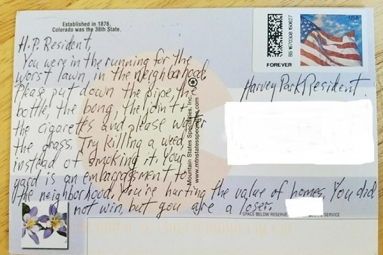 Established in 1876.
Colorado was the 38th State.
H.P. Resident,
You were in the running for the
worst lawn, in the neighborhood.
Please put down the pipe, the
bottle, the bong, the joint
the cigarettes and please water
the grass. Try killing a weed
instead of smoking it. Your
yard is an embarrassment to
the neighborhood. You're hurting the value of homes. You did
not win, but you are a loser.
Mountain States Specialties, Inc.
USA
FOREVER
Harvey Park Resident
SPACE BELOW RESERVED SERVICE